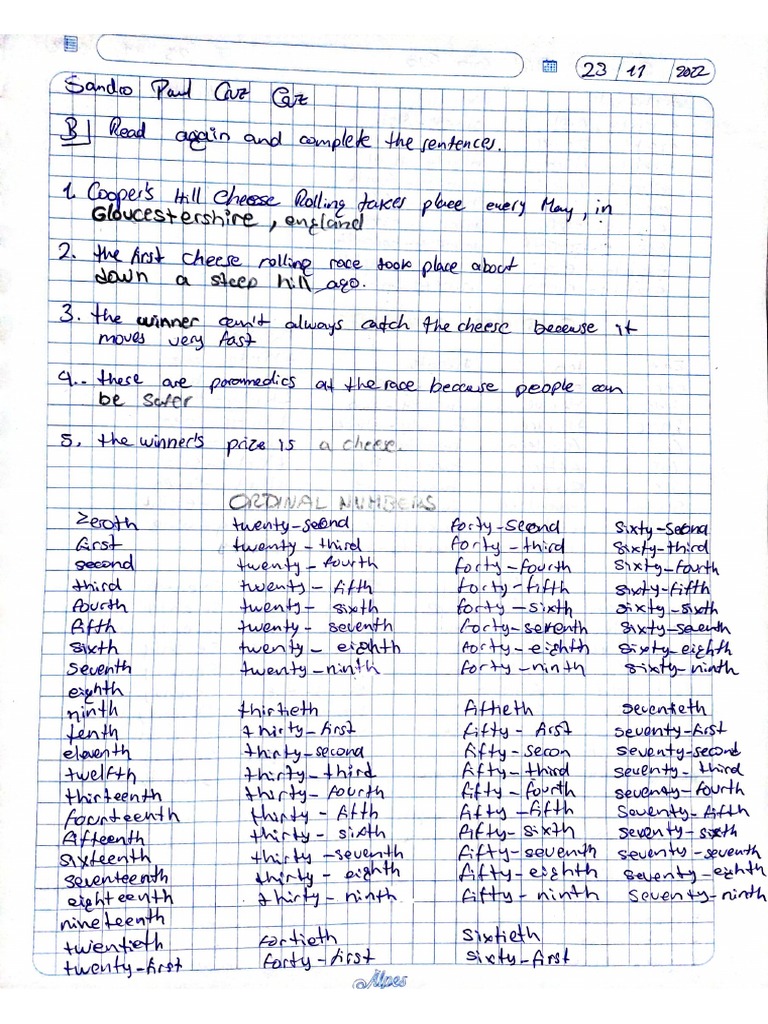 23 / 11 / 2022
Sandro Paul Cruz Cruz
B| Read again and complete the sentences.
1. Cooper's Hill Cheese Rolling takes place every May, in
Gloucestershire, england
2. the first cheese rolling race took place about
down a steep hill ago.
3. the winner can't always catch the cheese because it
moves very fast
4.. these are paramedics at the race because people can
be safer
5. the winner's prize is a cheese.
ORDINAL NUMBERS
zeroth twenty-second forty-second sixty-second
first twenty-third forty-third sixty-third
second twenty-fourth forty-fourth sixty-fourth
third twenty-fifth forty-fifth sixty-fifth
fourth twenty-sixth forty-sixth sixty-sixth
fifth twenty-seventh forty-seventh sixty-seventh
sixth twenty-eighth forty-eighth sixty-eighth
seventh twenty-ninth forty-ninth sixty-ninth
eighth
ninth thirtieth fiftieth seventieth
tenth thirty-first fifty-first seventy-first
eleventh thirty-second fifty-secon seventy-second
twelfth thirty-third fifty-third seventy-third
thirteenth thirty-fourth fifty-fourth seventy-fourth
fourteenth thirty-fifth fifty-fifth seventy-fifth
fifteenth thirty-sixth fifty-sixth seventy-sixth
sixteenth thirty-seventh fifty-seventh seventy-seventh
seventeenth thirty-eighth fifty-eighth seventy-eighth
eighteenth thirty-ninth fifty-ninth seventy-ninth
nineteenth
twentieth fortieth sixtieth
twenty-first forty-first sixty-first
Alpes